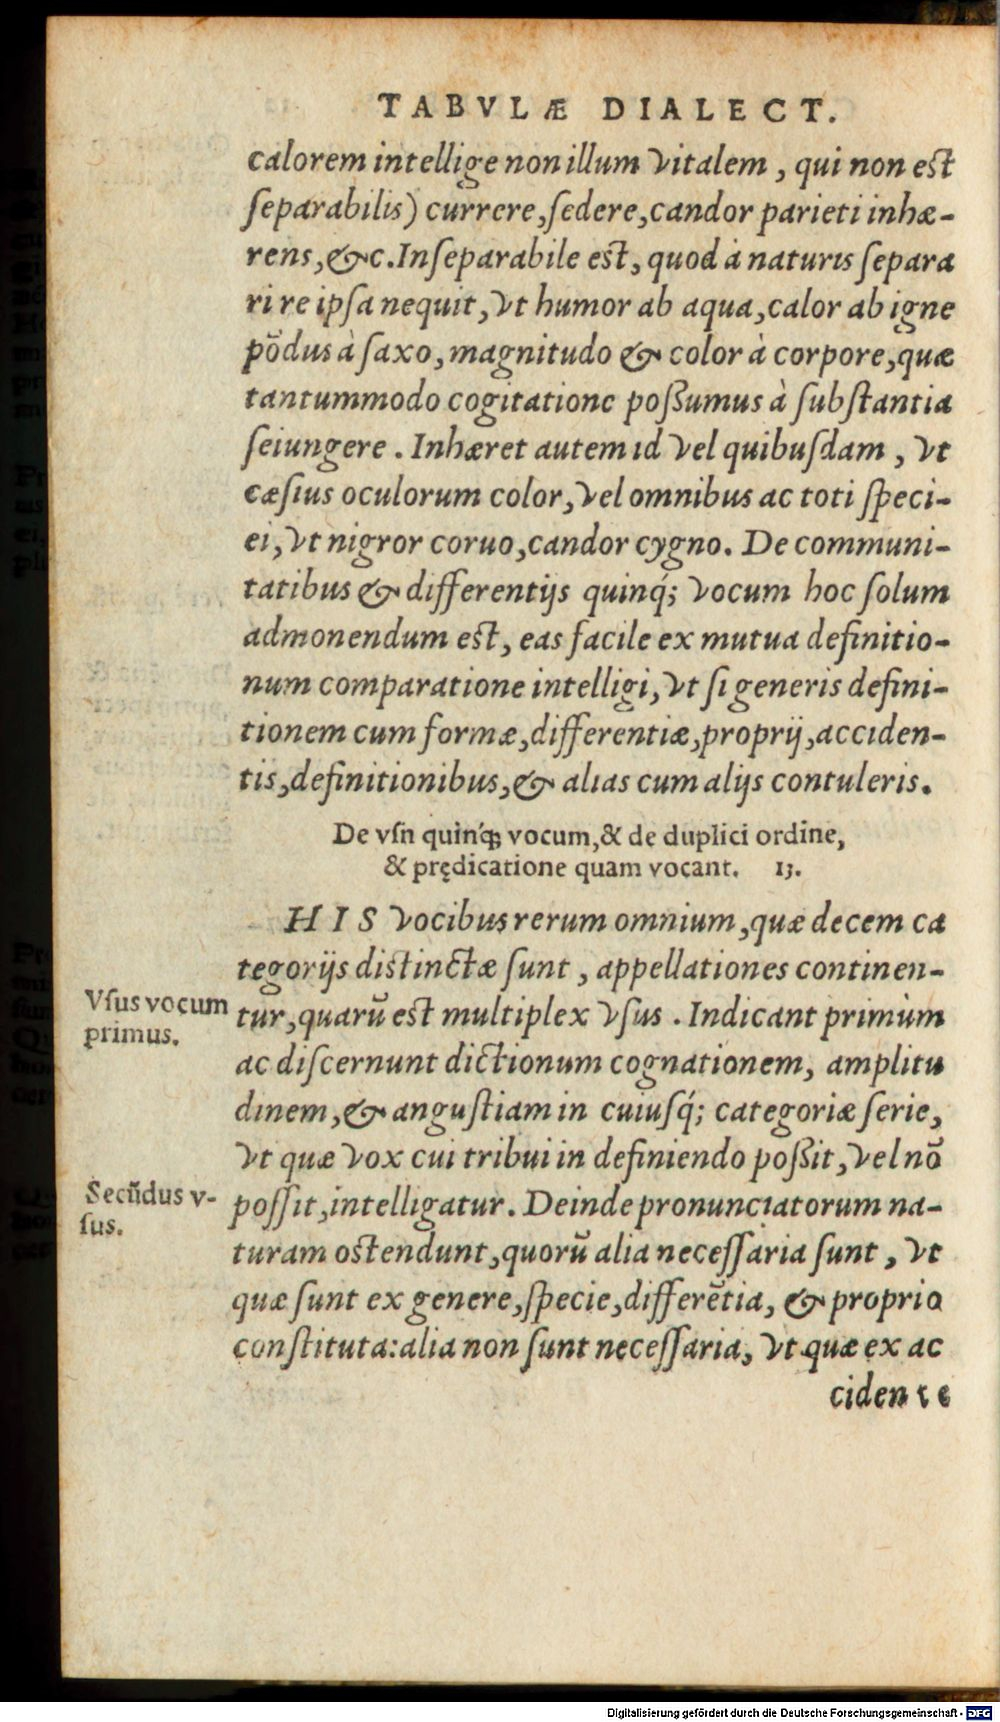 TABVLÆ DIALECT.
calorem intellige non illum vitalem, qui non est
ſeparabilis) currere, ſedere, candor parieti inhæ-
rens, &c. Inſeparabile est, quod à naturis ſepara
ri re ipſa nequit, vt humor ab aqua, calor ab igne
põdus à ſaxo, magnitudo & color à corpore, quæ
tantummodo cogitatione poſſumus à ſubſtantia
ſeiungere. Inhæret autem id vel quibuſdam, vt
cæſius oculorum color, vel omnibus ac toti ſpeci-
ei, vt nigror coruo, candor cygno. De communi-
tatibus & differentijs quinq́; vocum hoc ſolum
admonendum est, eas facile ex mutua definitio-
num comparatione intelligi, vt ſi generis defini-
tionem cum formæ, differentiæ, proprij, acciden-
tis, definitionibus, & alias cum alijs contuleris.
De vſu quinq́; vocum, & de duplici ordine,
& prędicatione quam vocant. 13.
HIS vocibus rerum omnium, quæ decem ca
tegorijs distinctæ ſunt, appellationes continen-
Vſus vocum
primus.
tur, quarũ est multiplex vſus. Indicant primùm
ac diſcernunt dictionum cognationem, amplitu
dinem, & anguſtiam in cuiuſq́; categoriæ ſerie,
vt quæ vox cui tribui in definiendo poſſit, vel nõ
Secũdus v-
ſus.
poſſit, intelligatur. Deinde pronunciatorum na-
turam ostendunt, quorũ alia neceſſaria ſunt, vt
quæ ſunt ex genere, ſpecie, differẽtia, & proprio
conſtituta: alia non ſunt neceſſaria, vt quæ ex ac
cidente
Digitalisierung gefördert durch die Deutsche Forschungsgemeinschaft - DFG